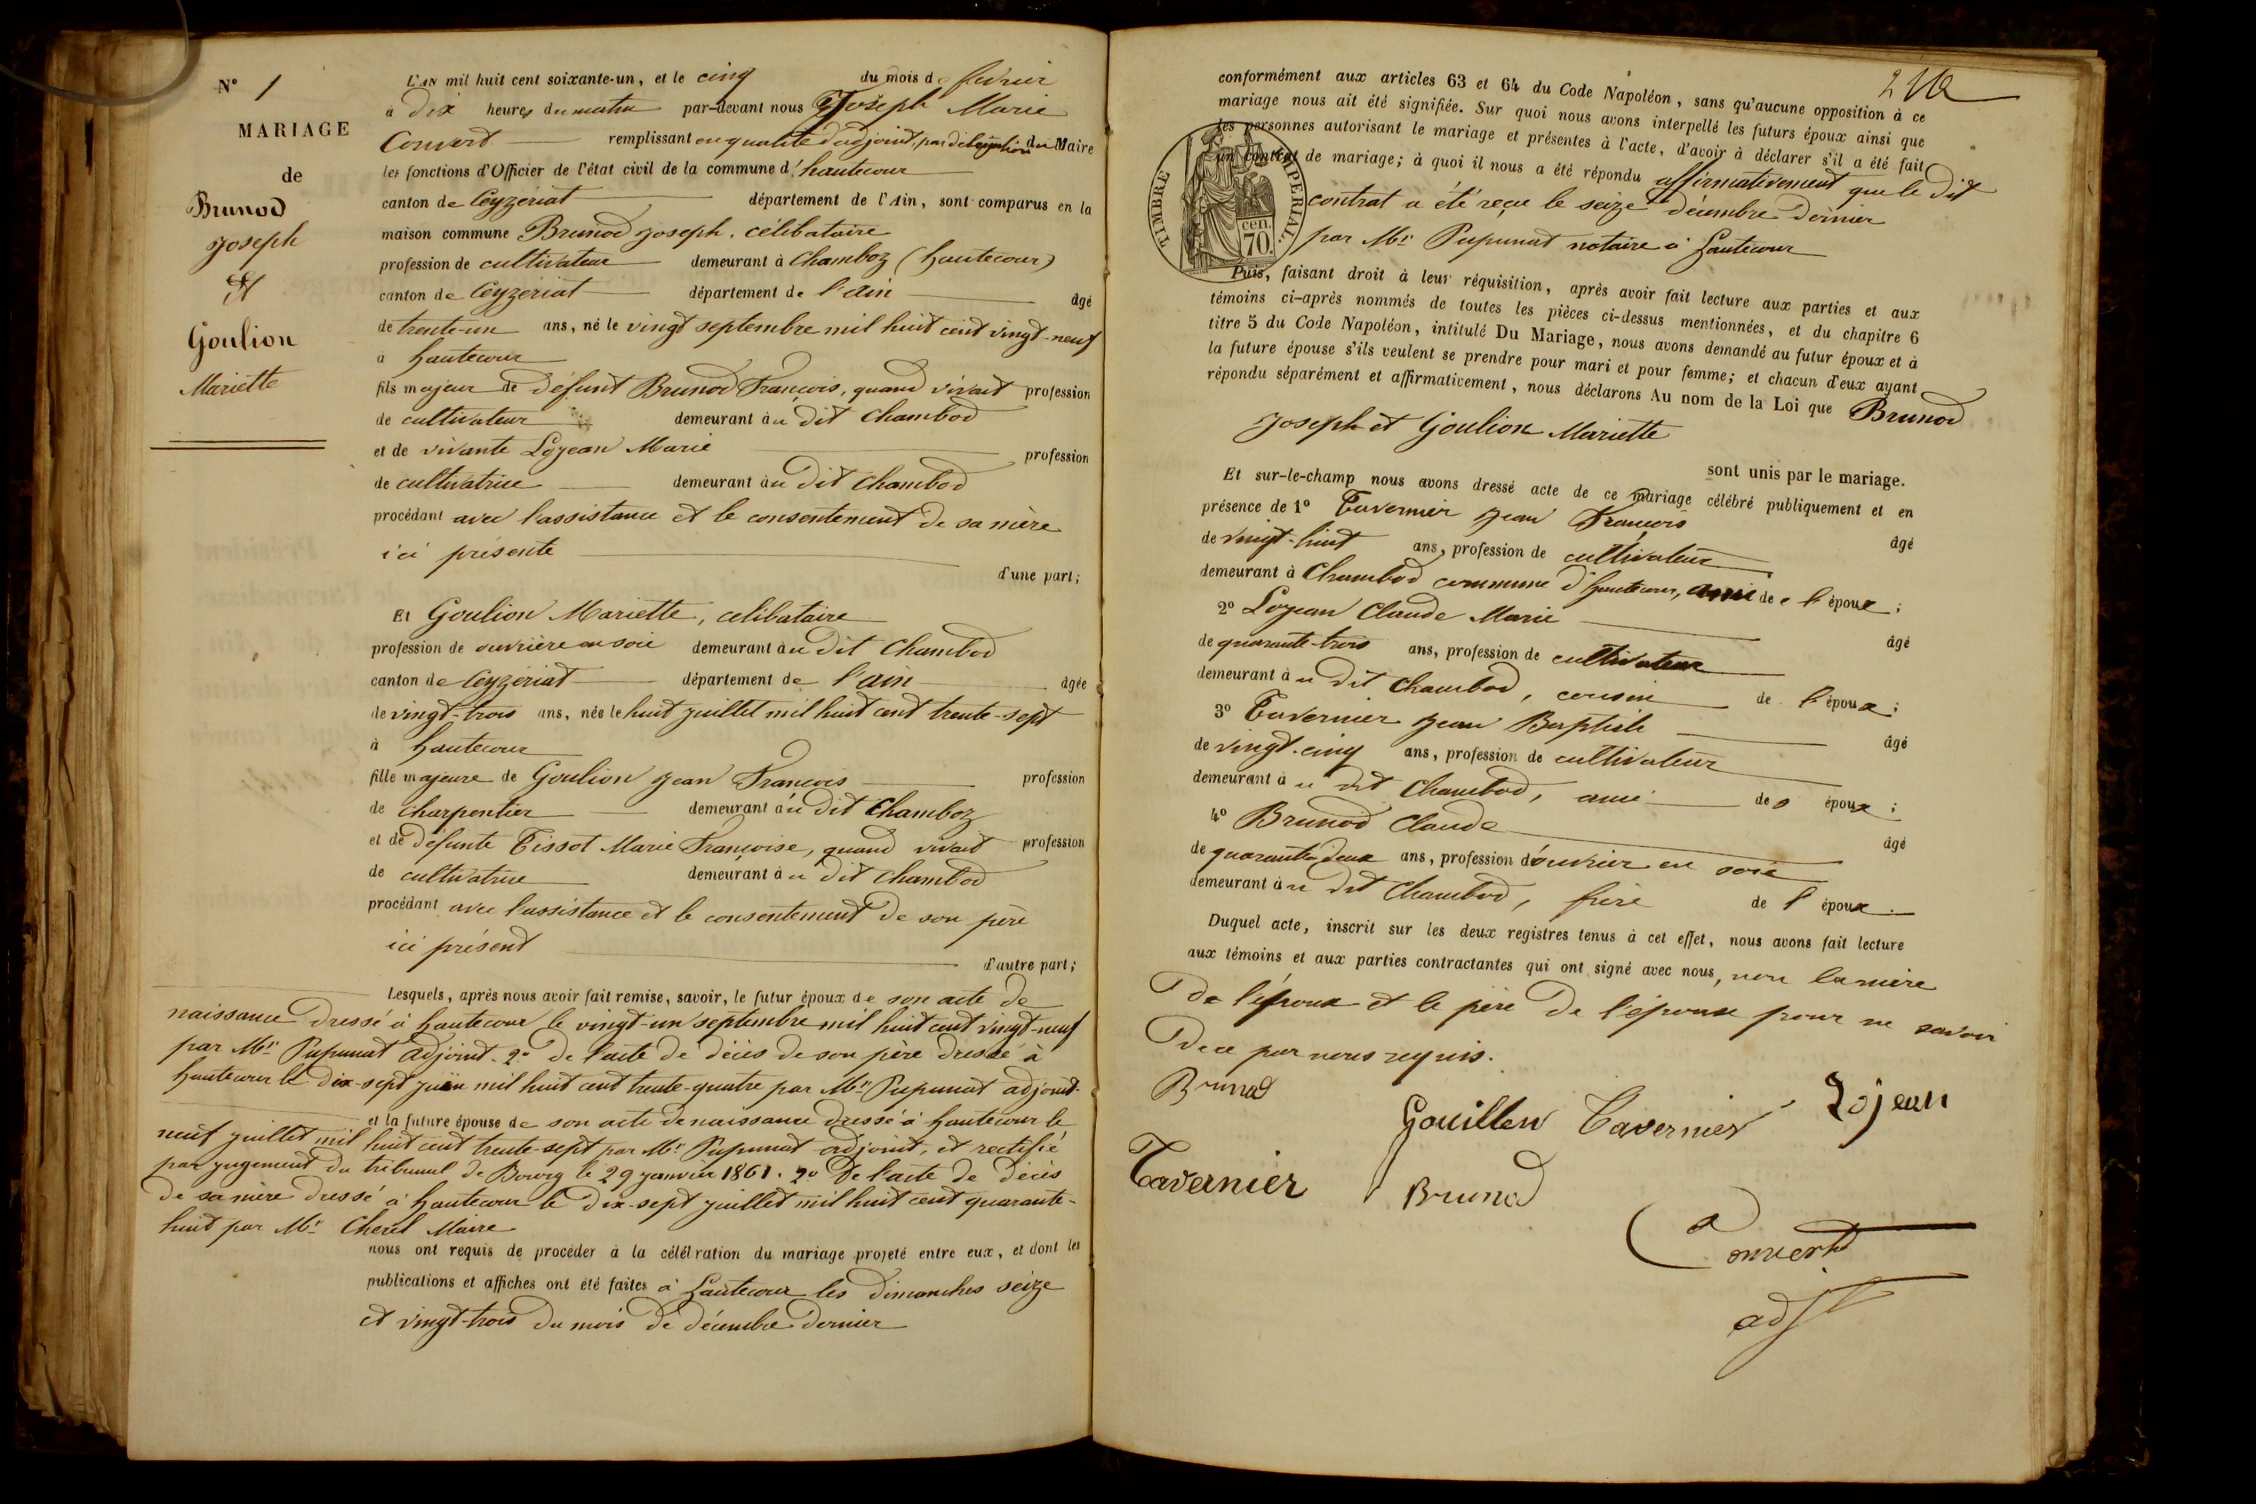 N° 1
MARIAGE
de
Brunod
Joseph
Et
Goulion
Mariette
L'AN mil huit cent soixante-un, et le cinq du mois de février
à dix heures du matin par-devant nous Joseph Marie
Convert remplissant en qualité d'adjoint, par délégation du Maire
les fonctions d'Officier de l'état civil de la commune d'hautecour
canton de Ceyzériat département de l'Ain, sont comparus en la
maison commune Brunod Joseph, célibataire
profession de cultivateur demeurant à Chamboz (hautecour)
canton de Ceyzeriat département de l'ain âgé
de trente-un ans, né le vingt septembre mil huit cent vingt-neuf
à hautecour
fils majeur de défunt Brunod François, quand vivait profession
de cultivateur demeurant àu dit Chambod
et de vivante Lojean Marie profession
de cultivatrice demeurant àu dit Chambod
procédant avec l'assistance et le consentement de sa mère
ici présente
d'une part;
Et Goulion Mariette, celibataire
profession de ouvrière en soie demeurant àu dit Chambod
canton de Ceyzériat département de l'ain âgée
de vingt-trois ans, née le huit juillet mil huit cent trente-sept
à hautecour
fille majeure de Goulion Jean François profession
de charpentier demeurant àu dit Chamboz
et de défunte Tissot Marie Françoise, quand vivait profession
de cultivatrice demeurant àu dit Chambod
procédant avec l'assistance et le consentement de son père
ici présent
d'autre part;
Lesquels, après nous avoir fait remise, savoir, le futur époux de son acte de
naissance dressé à hautecour le vingt-un septembre mil huit cent vingt-neuf
par Mr Pupunat adjoint. 2° de l'acte de décès de son père dressé à
hautecour le dix-sept juin mil huit cent trente-quatre par Mr Pupunat adjoint
et la future épouse de son acte de naissance dressé à hautecour le
neuf juillet mil huit cent trente-sept par Mr Pupunat adjoint, et rectifié
par jugement du tribunal de Bourg le 29 janvier 1861. 2° De l'acte de décès
de sa mère dressé à hautecour le dix-sept juillet mil huit cent quarante-
huit par Mr Cherel Maire
nous ont requis de procéder à la célébration du mariage projeté entre eux, et dont les
publications et affiches ont été faites à hautecour les dimanches seize
et vingt-trois du mois de décembre dernier
conformément aux articles 63 et 64 du Code Napoléon, sans qu'aucune opposition à ce
mariage nous ait été signifiée. Sur quoi nous avons interpellé les futurs époux ainsi que
les personnes autorisant le mariage et présentes à l'acte, d'avoir à déclarer s'il a été fait
un contrat de mariage; à quoi il nous a été répondu affirmativement que le dit
contrat a été reçu le seize décembre dernier
par Mr Pupunat notaire à hautecour
TIMBRE IMPERIAL.
cen.
70.
Puis, faisant droit à leur réquisition, après avoir fait lecture aux parties et aux
témoins ci-après nommés de toutes les pièces ci-dessus mentionnées, et du chapitre 6
titre 5 du Code Napoléon, intitulé Du Mariage, nous avons demandé au futur époux et à
la future épouse s'ils veulent se prendre pour mari et pour femme; et chacun d'eux ayant
répondu séparément et affirmativement, nous déclarons Au nom de la Loi que Brunod
Joseph et Goulion Mariette
sont unis par le mariage.
Et sur-le-champ nous avons dressé acte de ce mariage célébré publiquement et en
présence de 1° Tavernier Jean François âgé
de vingt-huit ans, profession de cultivateur
demeurant à Chambod commune d'hautecour, ami de l'époux;
2° Lojean Claude Marie âgé
de quarante-trois ans, profession de cultivateur
demeurant àu dit Chambod, cousin de l'époux;
3° Tavernier Jean Baptiste âgé
de vingt-cinq ans, profession de cultivateur
demeurant àu dit Chambod, ami de époux;
4° Brunod Claude âgé
de quarante-deux ans, profession d'ouvrier en soie
demeurant àu dit Chambod, frère de l'époux.
Duquel acte, inscrit sur les deux registres tenus à cet effet, nous avons fait lecture
aux témoins et aux parties contractantes qui ont signé avec nous, non la mère
de l'époux et le père de l'épouse pour ne savoir
de ce par nous requis.
Brunod
Gouillon Tavernier Lojean
Tavernier Brunod
Convert
adjt